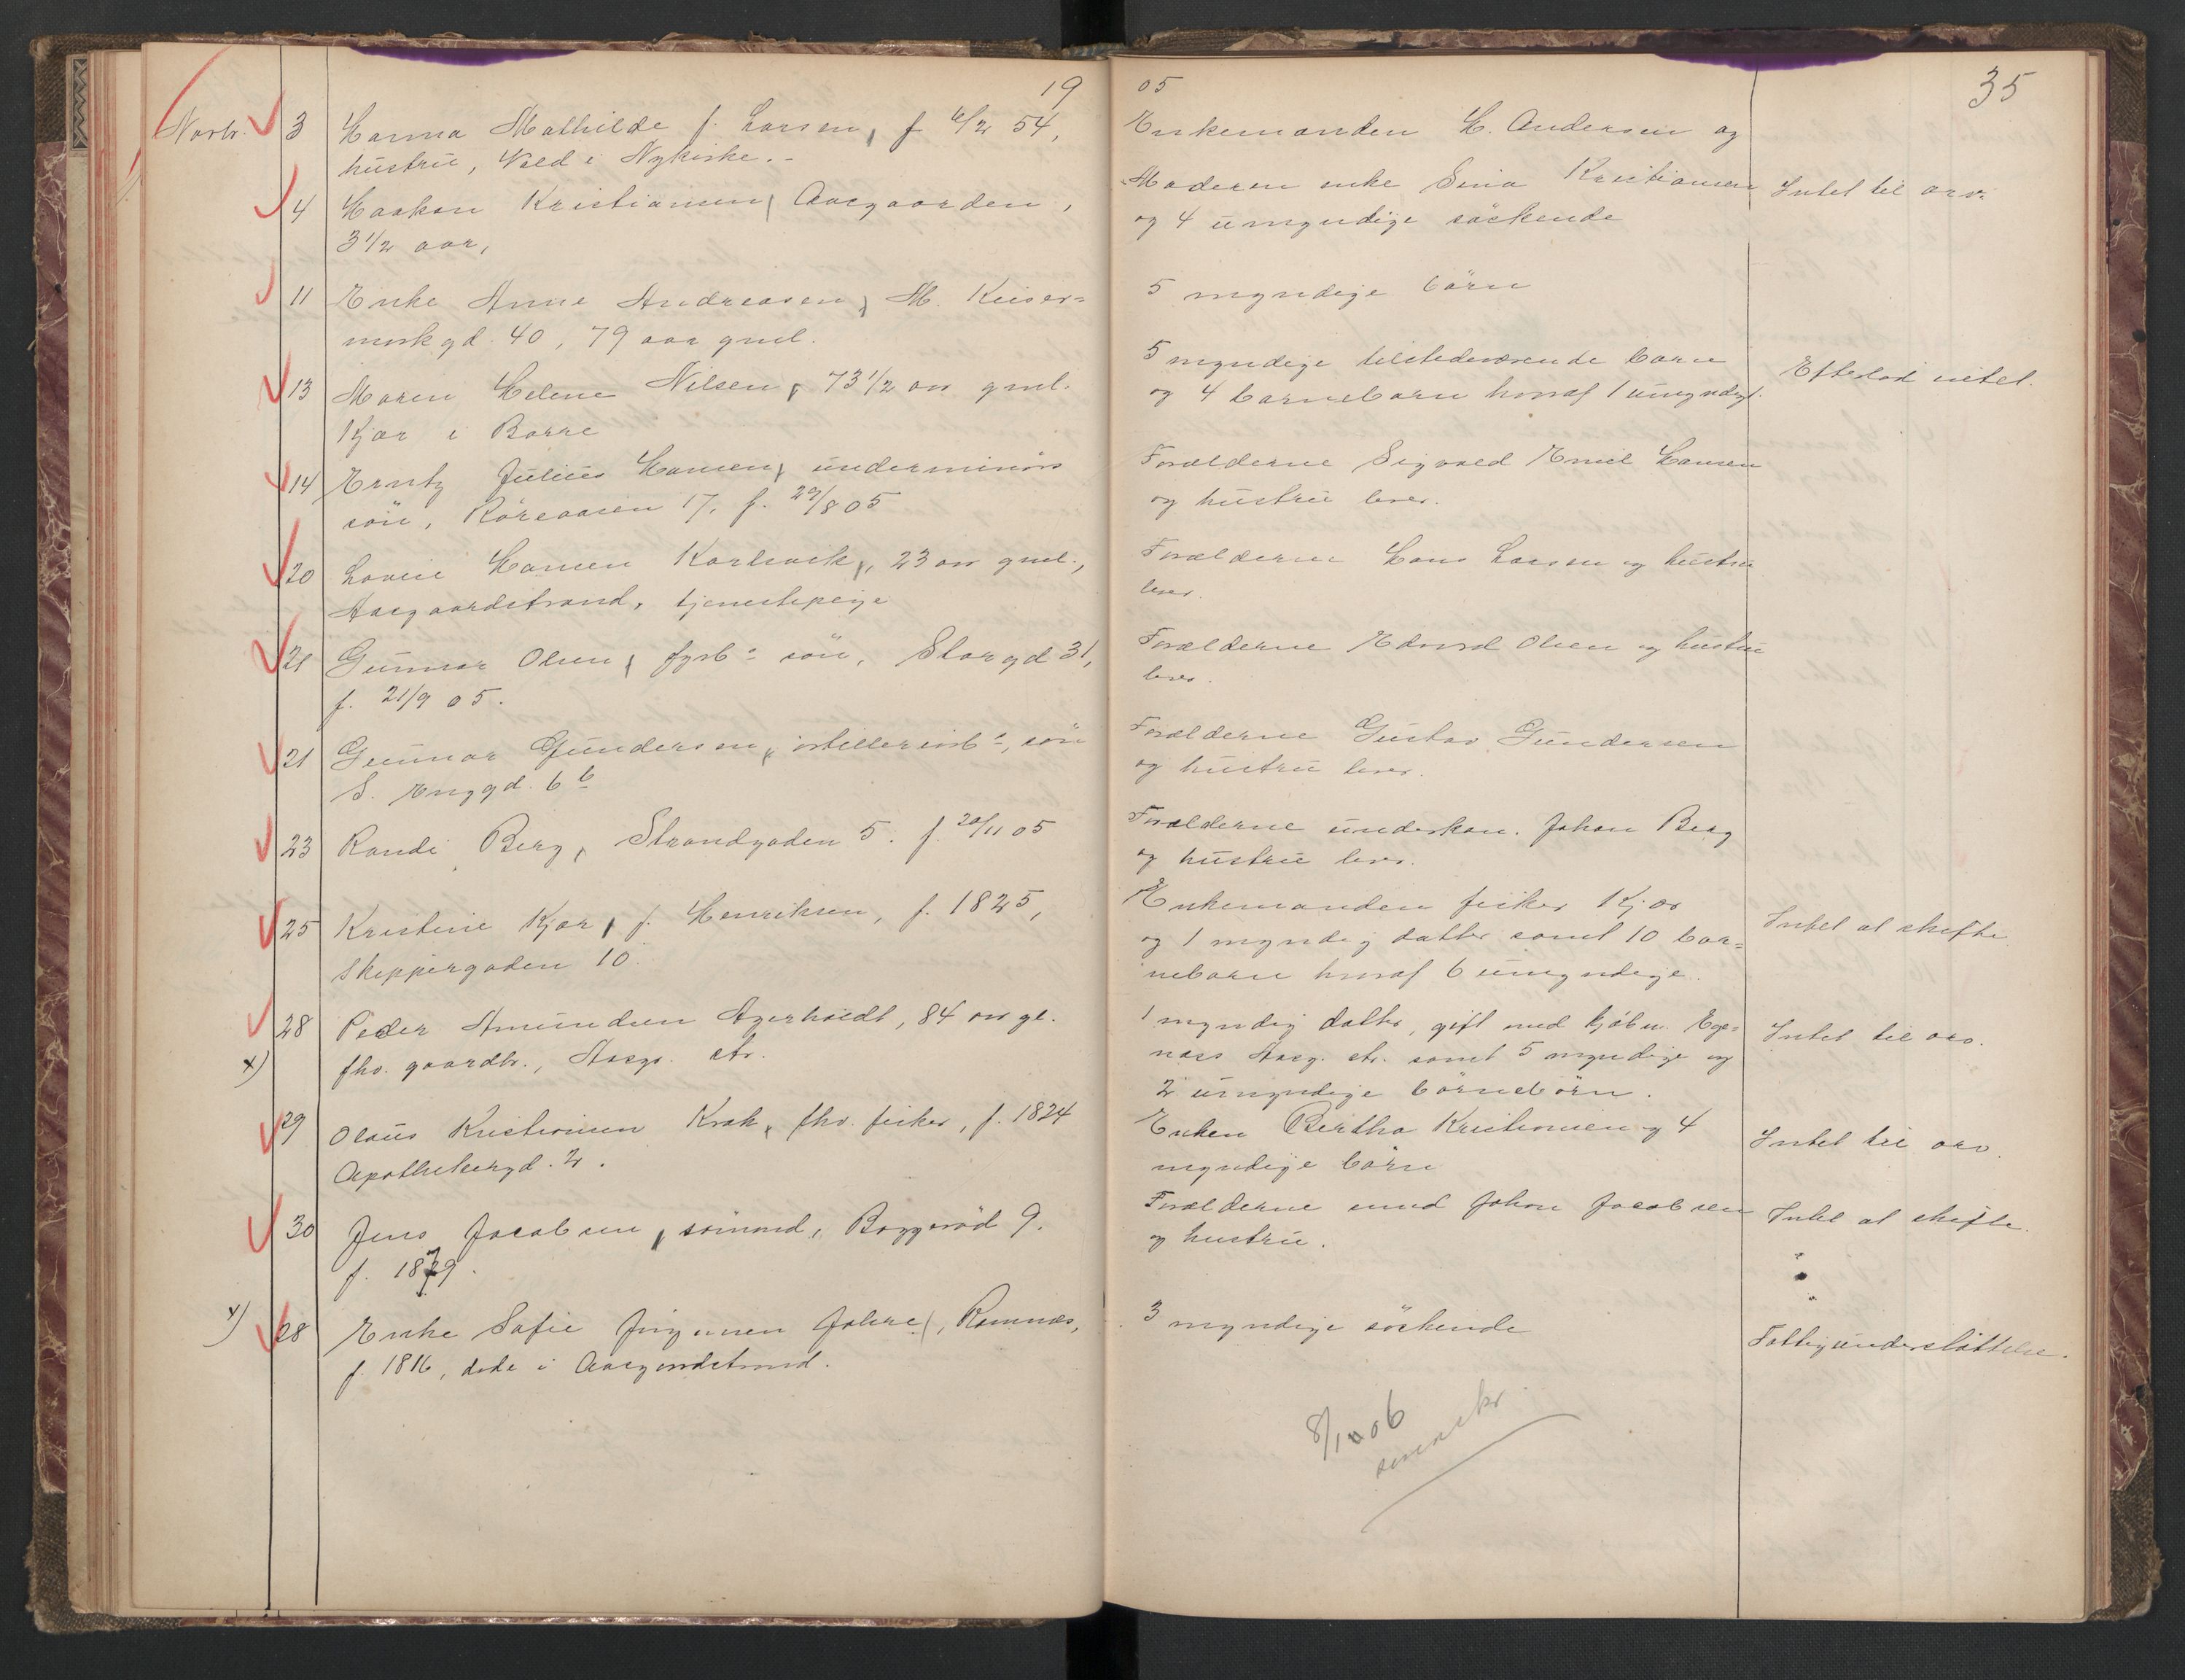 19
05
35
Novbr. 3 Hanna Mathilde f. Larsen, f 6/2 54,
hustru, Vold i Nykirke. -
Enkemanden H. Andersen og
4 Haakon Kristiansen, Aasgaarden,
3 1/2 aar,
Moderen enke Sina Kristiansen
og 4 umyndige söskende
Intet til arv.
11 Enke Anne Andreasen, M. Keiser=
mrkgd. 40, 79 aar gml.
5 myndige börn
13 Maren Helene Nilsen, 73 1/2 aar gml.
Kjær i Borre
5 myndige tilstedeværende börn
og 4 barnebarn hvoraf 1 umyndigt.
Efterlod intet.
14 Erntz Julius Hansen, underminörs
sön, Röreaasen 17, f. 29/8 05
Forælderne Sigvald Emil Hansen
og hustru lever.
20 Lovise Hansen Karlsvik, 23 aar gml.,
Aasgaardstrand, tjenestepige
Forælderne Hans Larsen og hustru
lever.
21 Gunnar Olsen, fyrb.s sön, Storgd 31,
f. 21/9 05.
Forælderne Edvard Olsen og hustru
lever.
21 Gunnar Gundersen, artillerists, sön
S. Enggd. 6 b
Forælderne Gustav Gundersen
og hustru lever.
23 Randi Berg, Strandgaden 5. f. 20/11 05
Forælderne underkan. Johan Berg
og hustru lever.
25 Kristine Kjær, f. Henriksen, f. 1825,
Skippergaden 10.
Enkemanden fisker Kjær
og 1 myndig datter samt 10 bar=
nebarn hvoraf 6 umyndige.
Intet at skifte
28 Peder Amundsen Agerholdt, 84 aar gl.
x) fhv. gaardbr., Aasgs. str.
1 myndig datter, gift med kjöbm. Ege=
næs Aasg. str. samt 5 myndige og
2 umyndige börnebörn.
Intet til arv.
29 Olaus Kristiansen Krok, fhv. fisker, f. 1824
Apothekergd. 2.
Enken Bertha Kristiansen og 4
myndige börn
Intet til arv.
30 Jens Jacobsen, sömand, Baggeröd 9.
f. 1879.
Forælderne smed Johan Jacobsen
og hustru.
Intet at skifte.
x) 28 Enke Sofie Jörgensen Jahre, Ramnæs,
f. 1816, döde i Aasgaardstrand.
3 myndige söskende
Fattigunderstöttelse.
8/1 06